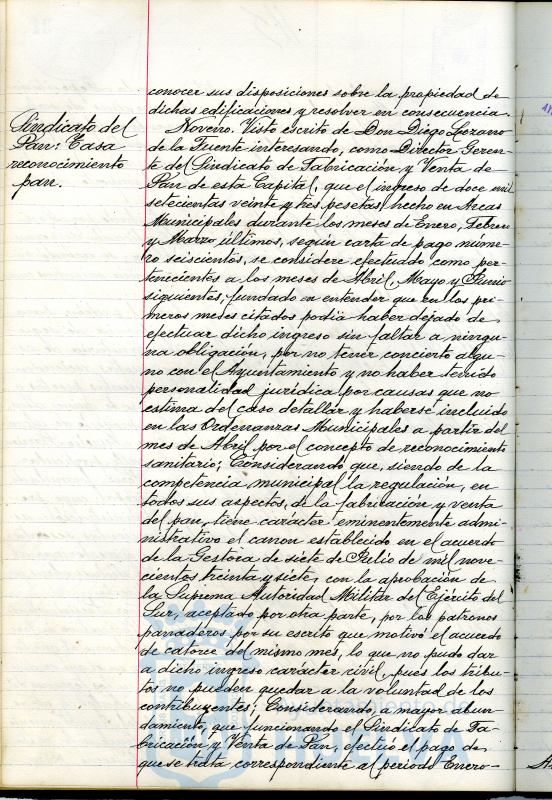 conocer sus disposiciones sobre la propiedad de
dichas edificaciones y resolver en consecuencia.
Sindicato del
Pan: Tasa
reconocimiento
pan.
Noveno. Visto escrito de Don Diego Lozano
de la Fuente interesando, como Director Geren-
te del Sindicato de Fabricación y Venta de
Pan de esta Capital, que el ingreso de doce mil
setecientas veinte y tres pesetas, hecho en Arcas
Municipales durante los meses de Enero, Febrero
y Marzo últimos, según carta de pago núme-
ro seiscientos, se considere efectuado como per-
tenecientes a los meses de Abril, Mayo y Junio
siguientes, fundado en entender que en los pri-
meros meses citados podia haber dejado de
efectuar dicho ingreso sin faltar a ningu-
na obligación, por no tener concierto algu-
no con el Ayuntamiento y no haber tenido
personalidad jurídica por causas que no
estima del caso detallar y haberse incluido
en las Ordenanzas Municipales a partir del
mes de Abril por el concepto de reconocimiento
sanitario; Considerando que, siendo de la
competencia municipal la regulación, en
todos sus aspectos, de la fabricación y venta
del pan, tiene carácter eminentemente admi-
nistrativo el canon establecido en el acuerdo
de la Gestora de siete de Julio de mil nove-
cientos treinta y siete, con la aprobación de
la Suprema Autoridad Militar del Ejército del
Sur, aceptado por otra parte, por los patronos
panaderos por su escrito que motivó el acuerdo
de catorce del mismo mes, lo que no pudo dar
a dicho ingreso carácter civil, pues los tribu-
tos no pueden quedar a la voluntad de los
contribuyentes; Considerando, a mayor abun-
damiento, que funcionando el Sindicato de Fa-
bricación y Venta de Pan, efectuó el pago de
que se trata, correspondiente al período Enero-